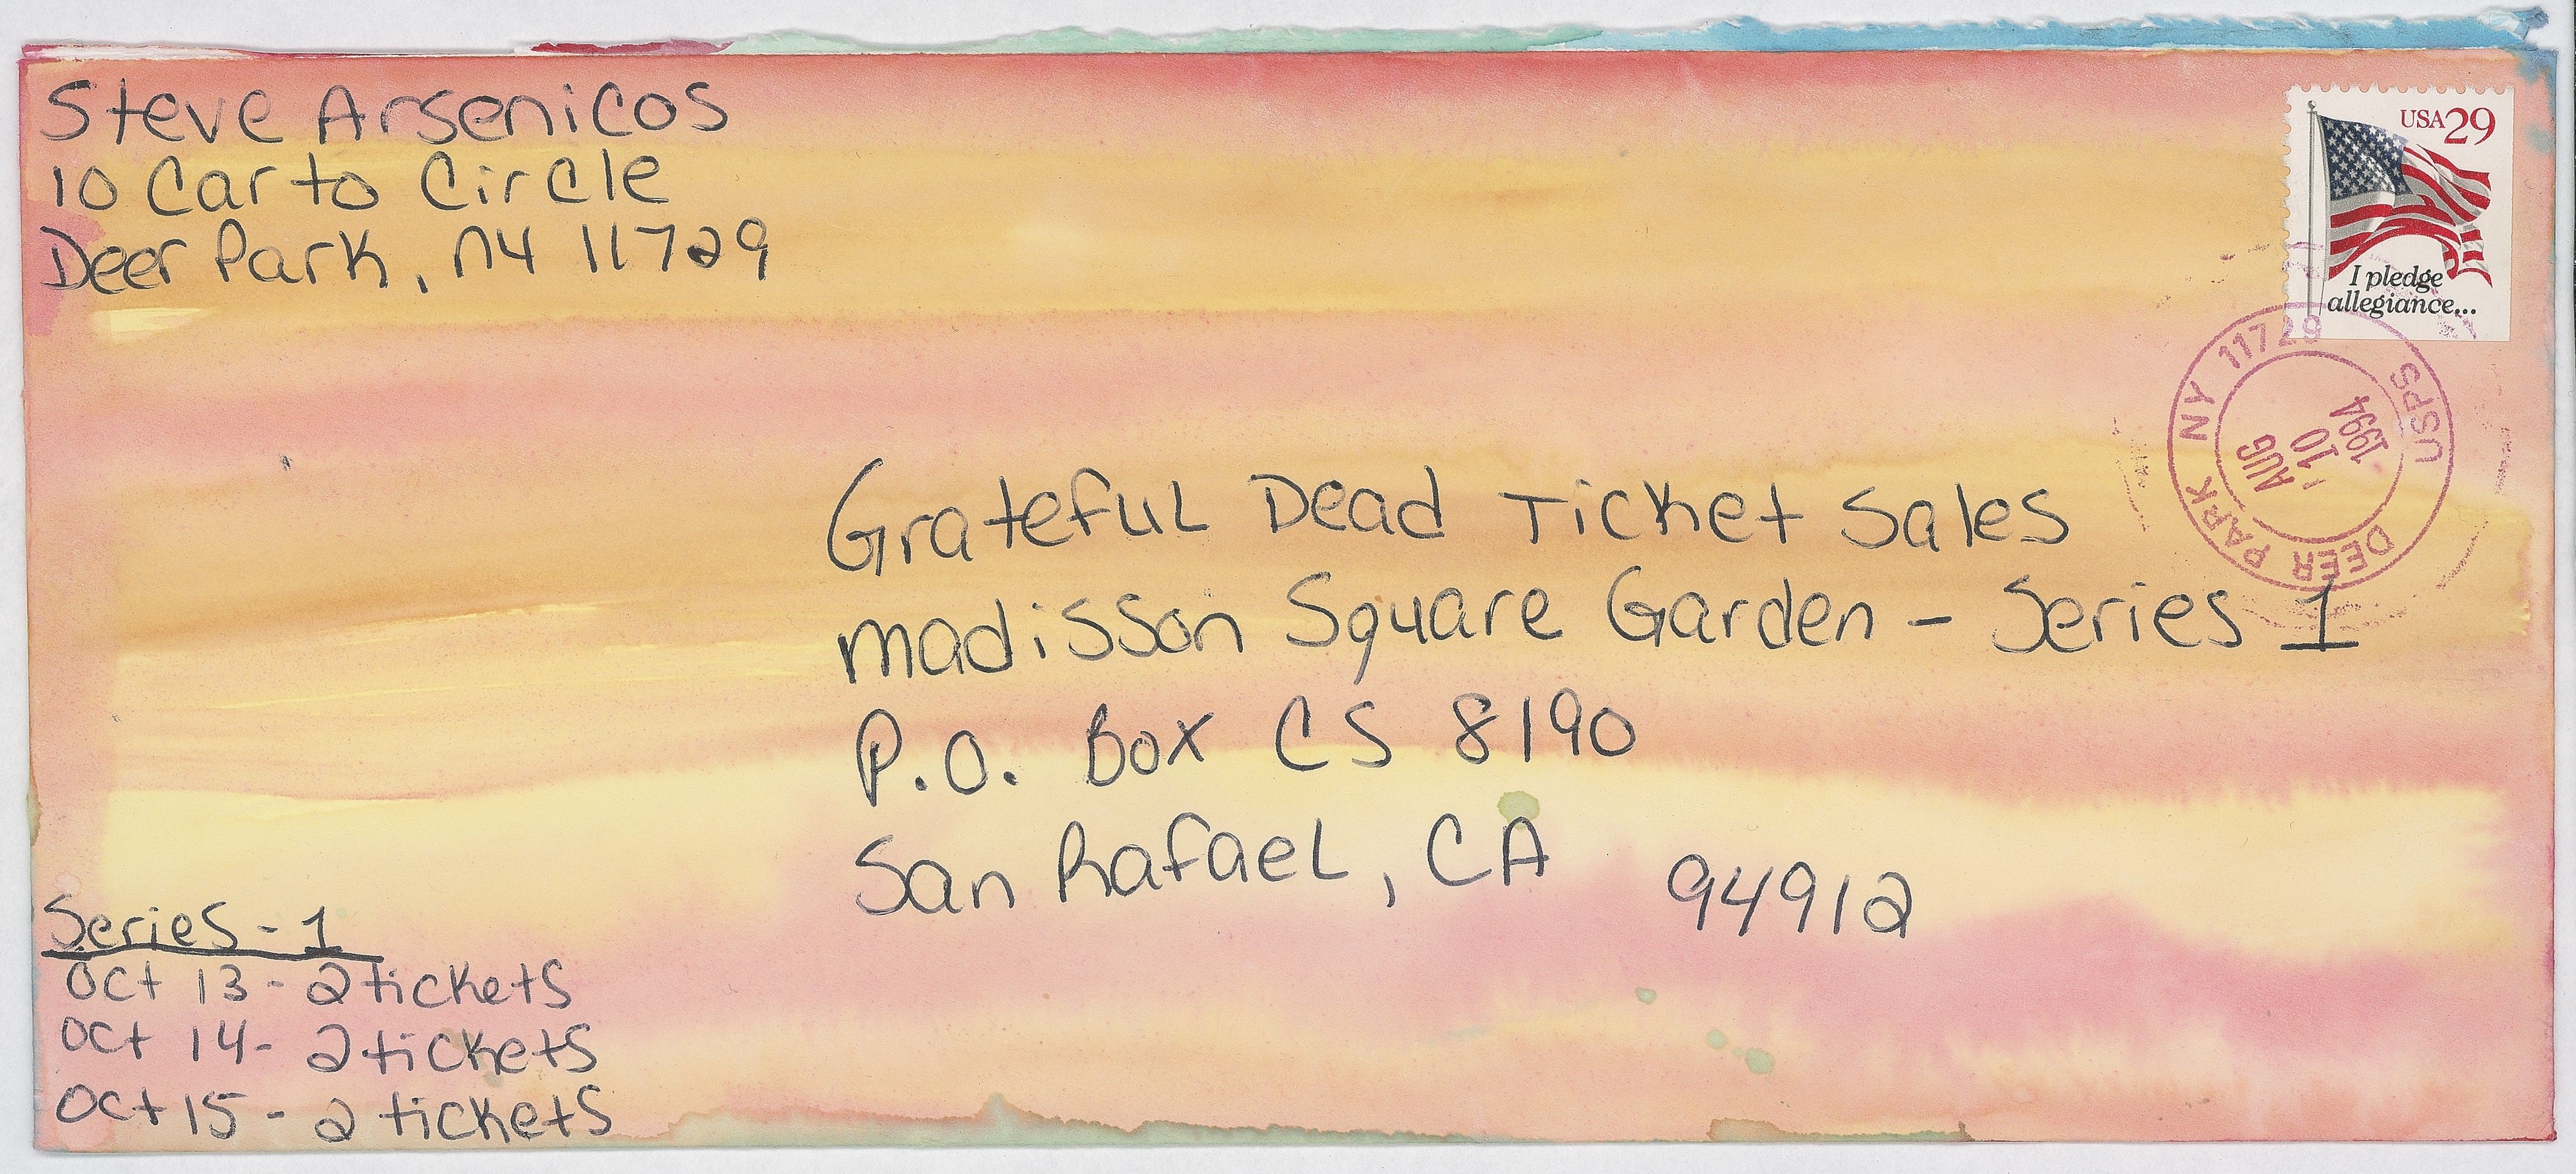 Steve Arsenicos
10 Carto Circle
Deer Park, NY 11729
USA 29
I pledge
allegiance...
DEER PARK NY 11729
USPS
AUG
10
1994
Grateful Dead Ticket Sales
Madisson Square Garden - Series 1
P.O. Box CS 8190
San Rafael, CA 94912
Series - 1
Oct 13 - 2 tickets
Oct 14 - 2 tickets
Oct 15 - 2 tickets